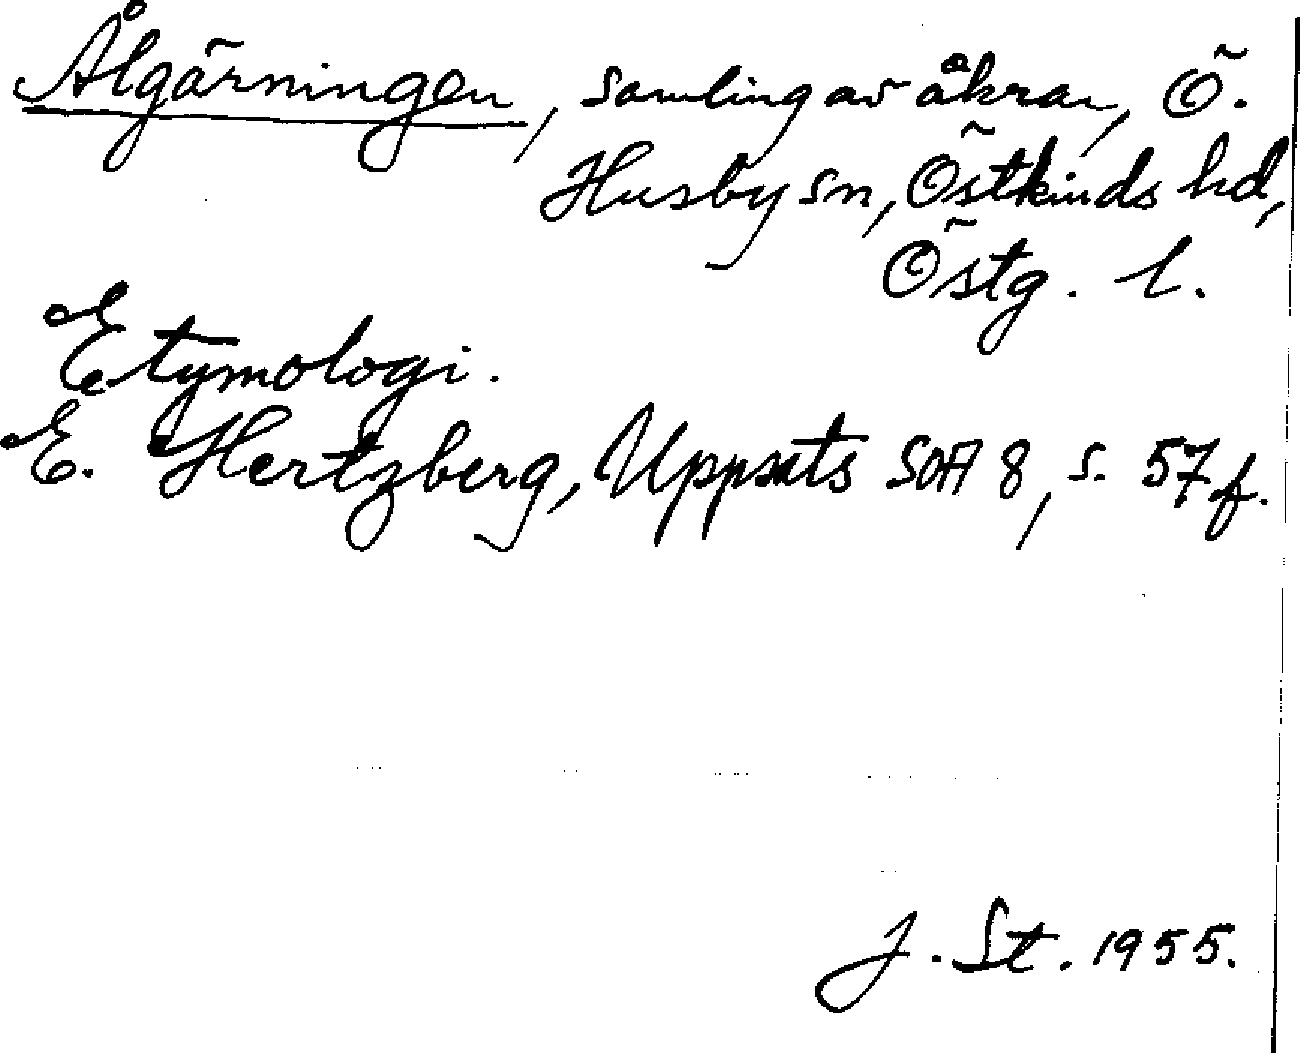 Ålgärningen, samling av åkrar, Ö.
Husby sn, Östkinds hd,
Östg. l.
Etymologi.
E. Hertzberg, Uppsats SOA 8, s. 57 f.
J. St. 1955.